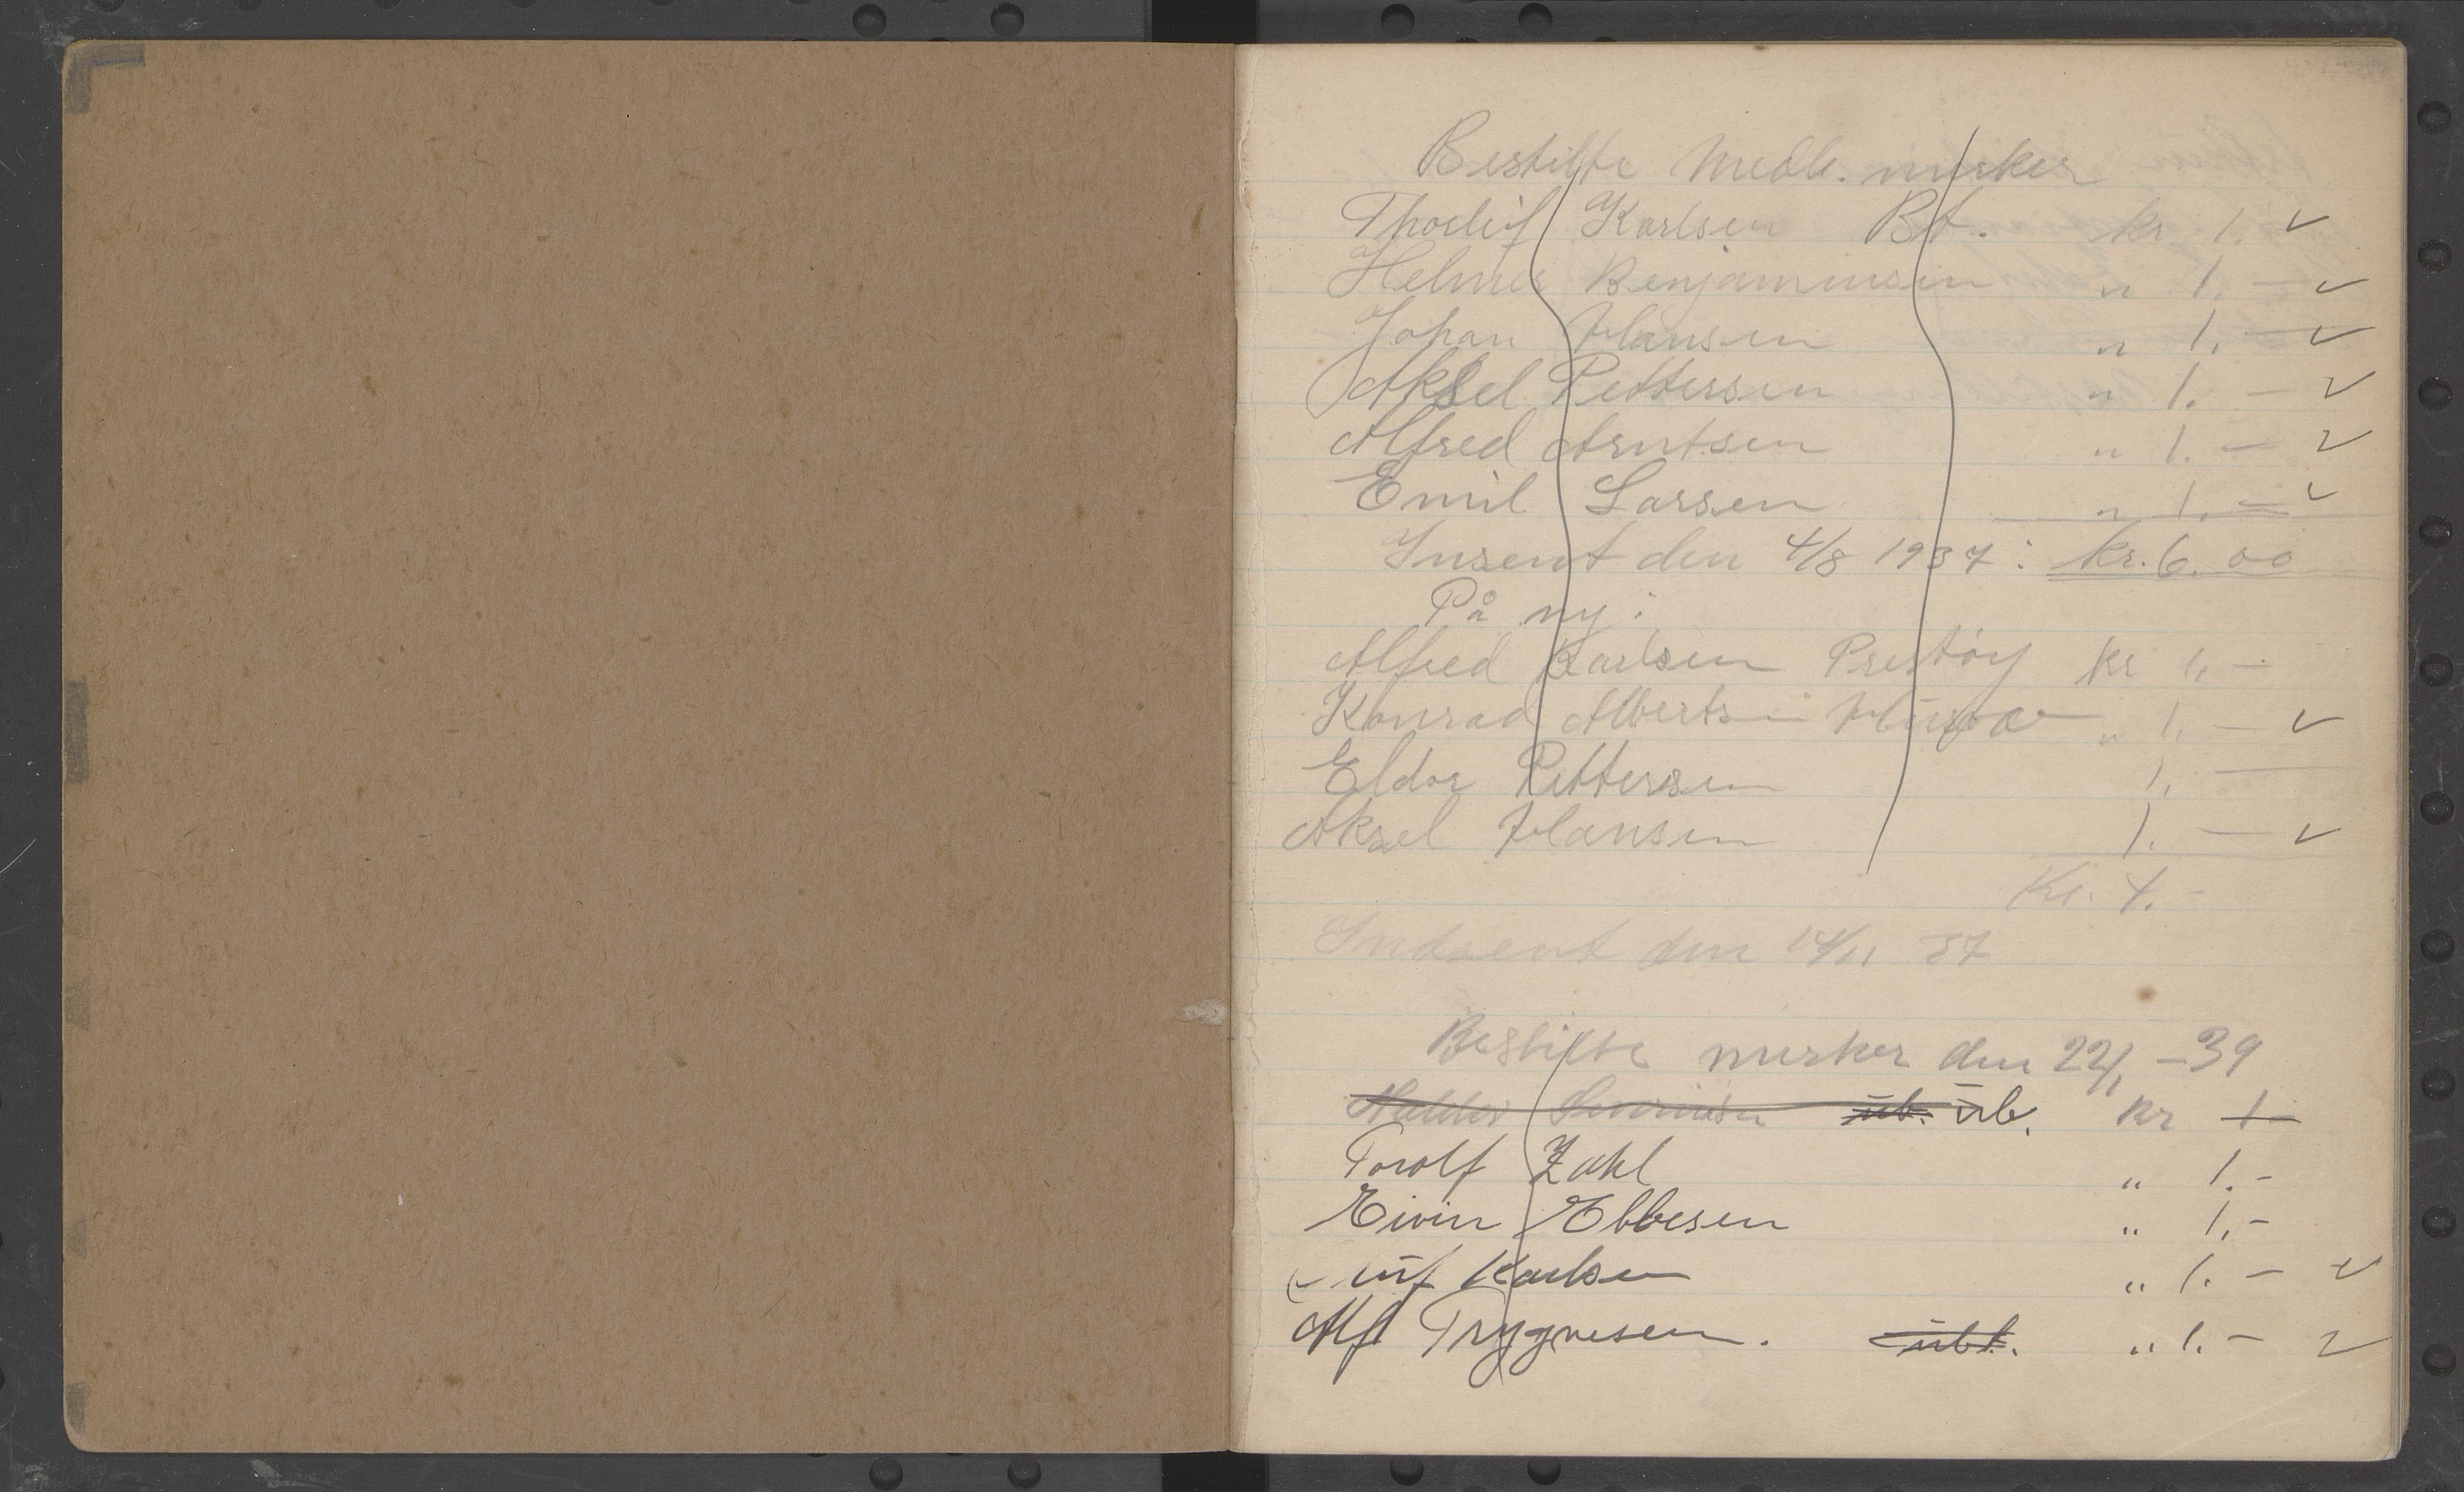 Bestilte Medl. merker
Thorleif Karlsen Bt. kr 1. ✓
Helmer Benjaminsen " 1. — ✓
Johan Hansen " 1. — ✓
Aksel Pettersen " 1. — ✓
Alfred Arntsen " 1. — ✓
Emil Larsen " 1. — ✓
Insent den 4/8 1937: kr. 6.00
På ny:
Alfred Karlsen Prestøy kr 1. —
Konrad Albertsen " 1. — ✓
Eldor Pettersen 1. —
Aksel Hansen 1. — ✓
Kr. 4. -
Indsent den 14/11 37
Bestilte merker den 22/1 - 39
ub. ub. kr 1 -
Torolf Zahl " 1. -
Eivin Ebbesen " 1, -
Karlsen " 1. — ✓
Alf Trygvesen. ubt. " 1. — ✓